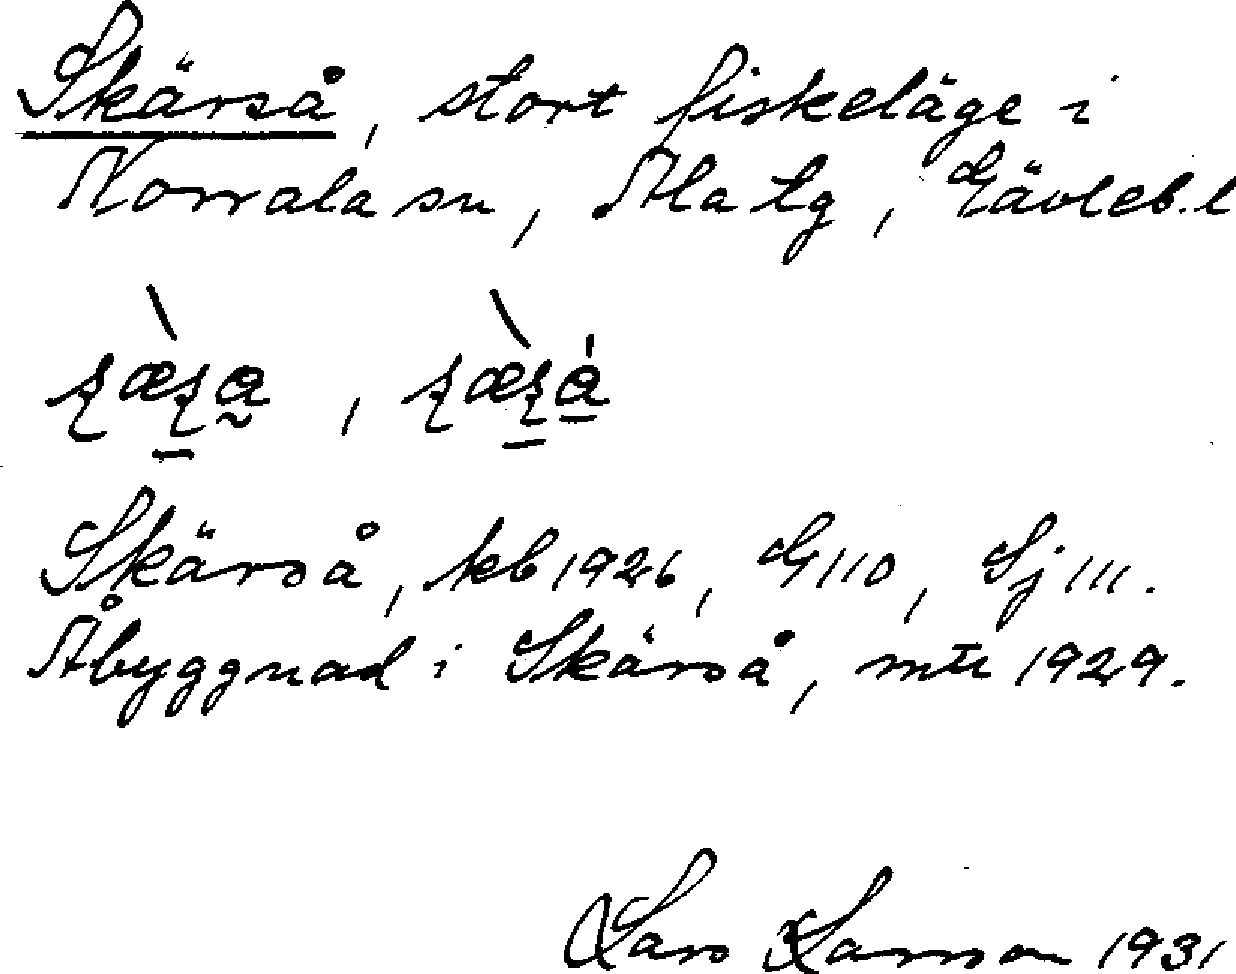 Skärså, stort fiskeläge i
Norrala sn, Ala tg, Gävleb. l
Skärså, kb 1926, G 110, Sj 111.
Åbyggnad i Skärså, mtl 1929.
Lars Larsson 1931